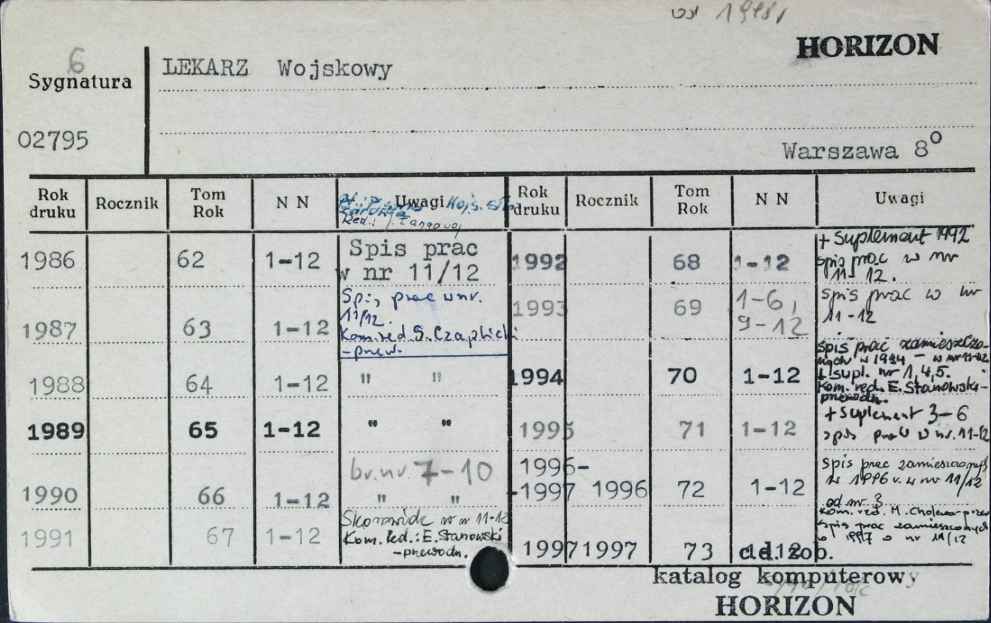 od 1981
HORIZON
6
Sygnatura
LEKARZ Wojskowy
02795
Warszawa 8°
Rok druku Rocznik Tom Rok N N Uwagi Rok druku Rocznik Tom Rok N N Uwagi
1986 62 1-12 Spis prac
w nr 11/12
1987 63 1-12 Spis prac w nr.
11/12.
Kom.red.S.Czaplicki
-przew.
1988 64 1-12 " "
1989 65 1-12 " "
br.nr. 7-10
1990 66 1-12 " "
1991 67 1-12 Skorowidz w nr 11-12
Kom. Red.: E. Stanowski
-przewodn.
1992 68 1-12 + Suplement 1992
spis prac w nr
11-12.
1993 69 1-6, spis prac w nr
9-12 11-12
1994 70 1-12 spis prac zamieszczo-
nych w 1994 - w nr 11-12
+ supl. nr 1,4,5.
kom. red. E. Stanowski-
przewodn.
1995 71 1-12 + Suplement 3-6
spis prac w nr. 11-12
1996-
-1997 1996 72 1-12 spis prac zamieszczonych
w 1996 r. w nr 11/12
od nr 3
kom. red. M. Cholewa-przew
1997 1997 73 1-12 spis prac zamieszczonych
w 1997 w nr 11/12
cd. zob.
katalog komputerowy
HORIZON